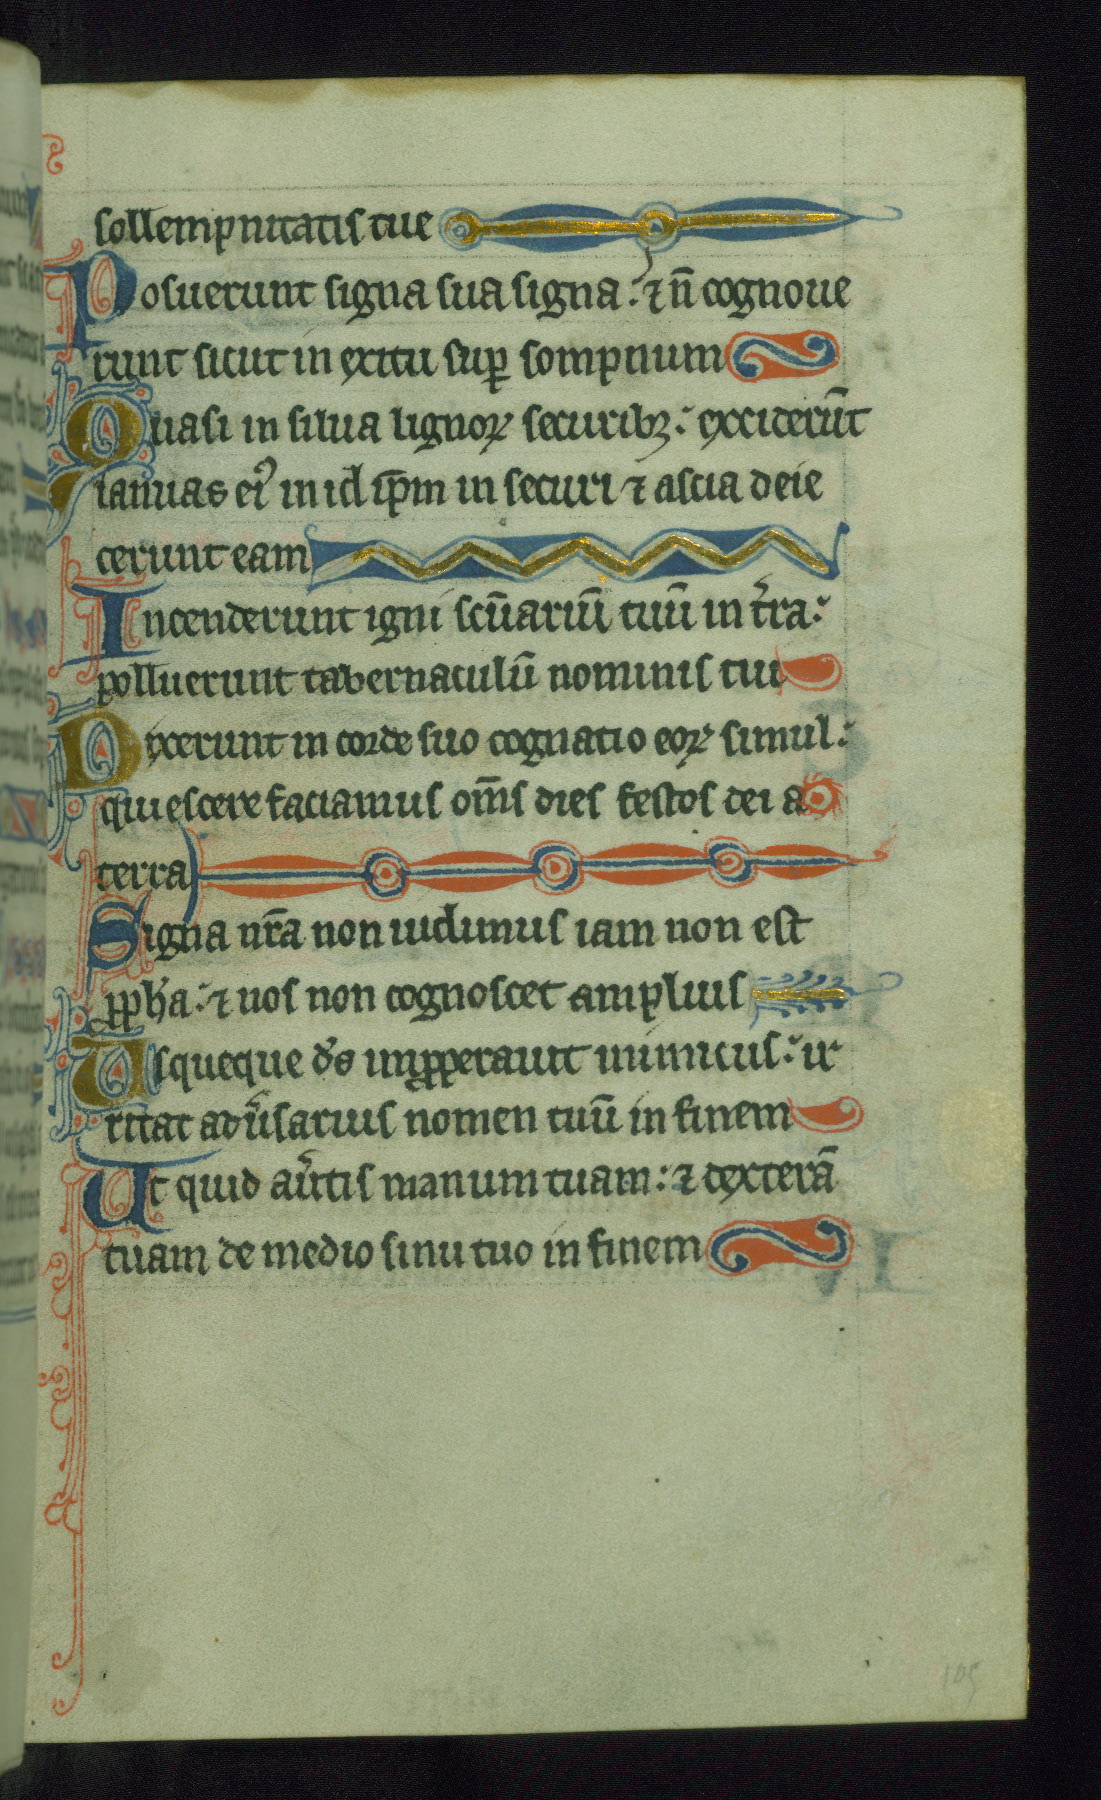 sollempnitatis tue
Posuerunt signa sua signa: ⁊ n̄ cognoue
runt sicut in exitu suꝑ sompnum
Quasi in silua lignoꝝ securibꝫ: exciderūt
ianuas eiꝰ in id ip̄m in securi ⁊ ascia deie
cerunt eam
Incenderunt igni scūariū tuū in t̄ra:
polluerunt tabernaculū nominis tui
Dixerunt in corde suo cognatio eoꝝ simul:
quiescere faciamus om̄s dies festos dei a
terra
Signa nr̄a non uidimus iam non est
ꝓph̄a: ⁊ nos non cognoscet amplius
Usqueque d̄s imꝓꝑerauit inimicus: ir
ritat adu̾sarius nomen tuū in finem
Ut quid au̾tis manum tuam: ⁊ dexterā
tuam de medio sinu tuo in finem
105